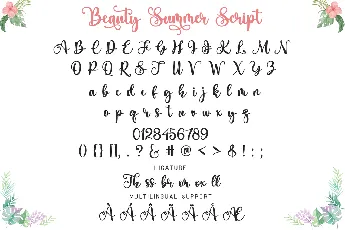 Beauty Summer Script
A B C D E F G H I J K L M N
O P Q R S T U V W X Y Z
a b c d e f g h i j k l m n
o p q r s t u v w x y z
0128456789
() {} [], . ? & # @ < > $ ! : ;
LIGATURE
Th ss br vr ox ll
MULTILINGUAL SUPPORT
À Á Â Ã Ä Å Æ